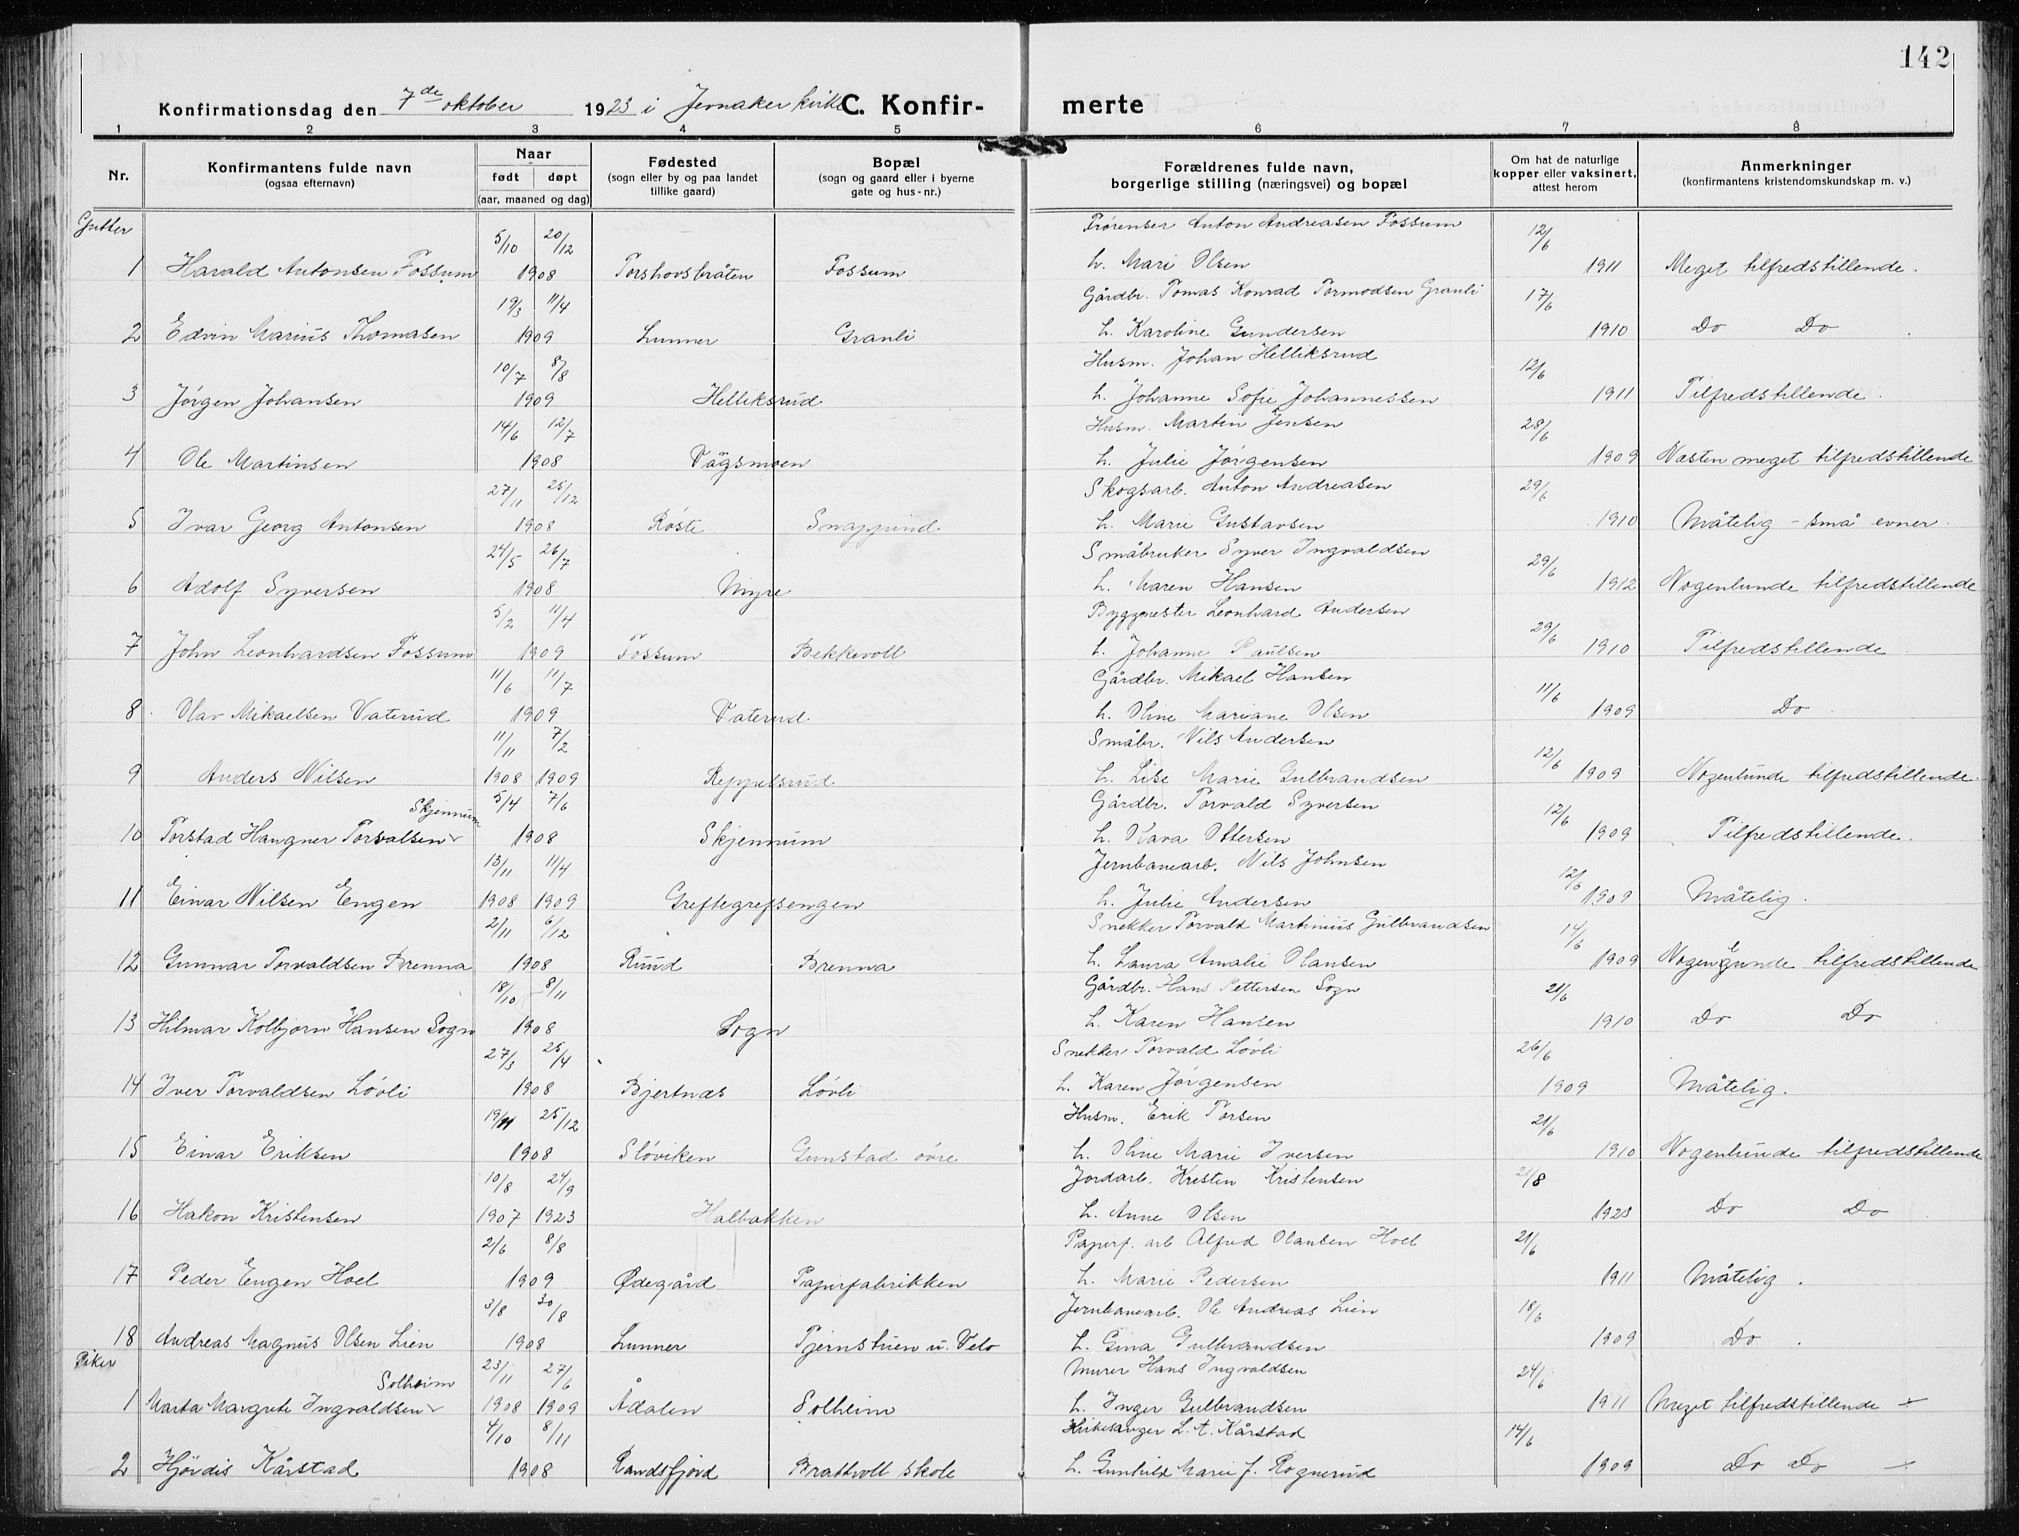 142
Konfirmationsdag den 7de oktober 1923 i Jevnaker kirke C. Konfirmerte
1 2 3 4 5 6 7 8
Nr.
Konfirmantens fulde navn
(ogsaa efternavn)
Naar
født døpt
(aar, maaned og dag)
Fødested
(sogn eller by og paa landet
tillike gaard)
Bopæl
(sogn og gaard eller i byerne
gate og hus-nr.)
Forældrenes fulde navn,
borgerlige stilling (næringsvei) og bopæl
Om hat de naturlige
kopper eller vaksinert,
attest herom
Anmerkninger
(konfirmantens kristendomskundskap m. v.)
Gutter
5/10 20/12 Anton Andreasen Fossum 12/6
1 Harald Antonsen Fossum 1908 Torshovsbråten Fossum h. Mari Olsen 1911 Meget tilfredstillende.
19/3 11/4 Gårdbr. Tomas Konrad Tormodsen Granli 17/6
2 Edvin Marius Thomasen 1909 Lunner Granli h. Karoline Gundersen 1910 Do Do
10/7 8/8 Husm. Johan Helliksrud 12/6
3 Jørgen Johansen 1909 Helliksrud h. Johanne Sofie Johannessen 1911 Tilfredstillende.
14/6 12/7 Husm. Martin Jensen 28/6
4 Ole Martinsen 1908 Vågsmoen h. Julie Jørgensen 1909 Næsten meget tilfredstillende
27/11 25/12 Skogsarb. Anton Andreasen 29/6
5 Ivar Georg Antonsen 1908 Røste h. Marie Gustavsen 1910 Måtelig - små evner.
24/5 26/7 Småbruker Syver Ingvaldsen 29/6
6 Adolf Syversen 1908 Myre h. Maren Hansen 1912 Nogenlunde tilfredstillende
5/2 11/4 Byggmester Leonhard Andersen 29/6
7 John Leonhardsen Fossum 1909 Fossum Bekkevoll h. Johanne Paulsen 1910 Tilfredstillende
11/6 11/7 Gårdbr. Mikael Hansen 11/6
8 Olav Mikaelsen Vaterud 1909 Vaterud h. Oline Mariane Olsen 1909 Do
11/11 7/2 Småbr. Nils Andersen 12/6
9 Anders Nilsen 1908 1909 Reppelsrud h. Lise Marie Gulbrandsen 1909 Nogenlunde tilfredstillende.
Skjennum 5/4 7/6 Gårdbr. Torvald Syversen 12/6
10 Torstad Hangner Torvalsen 1908 Skjennum h. Klara Ottersen 1909 Tilfredstillende.
13/11 11/4 Jernbanearb. Nils Johnsen 12/6
11 Einar Nilsen Engen 1908 1909 Greftegrefsengen h. Julie Andersen 1909 Måtelig.
2/11 6/12 Snekker Torvald Martinius Gulbrandsen 14/6
12 Gunnar Torvaldsen Brenna 1908 Ruud Brenna h. Laura Amalie Olansen 1909 Nogenlunde tilfredstillende
18/10 8/11 Gårdbr. Hans Pettersen Sogn 21/6
13 Hilmar Kolbjørn Hansen Sogn 1908 Sogn h. Karen Hansen 1910 Do Do
27/3 25/4 Snekker Torvald Løvli 26/6
14 Iver Torvaldsen Løvli 1908 Bjertnæs Løvli h. Karen Jørgensen 1909 Måtelig.
19/11 25/12 Husm. Erik Torsen 21/6
15 Einar Eriksen 1908 Sløviken Gunstad øvre h. Oline Marie Iversen 1910 Nogenlunde tilfredstillende
10/8 24/9 Jordarb. Kresten Kristensen 21/8
16 Hakon Kristensen 1907 1923 Halbakken h. Anne Olsen 1923 Do Do
2/6 8/8 Papirf. arb Alfred Olansen Hoel 21/6
17 Peder Eugen Hoel 1909 Ødegård Papirfabrikken h. Marie Pedersen 1911 Måtelig.
3/8 30/8 Jernbanearb. Ole Andreas Lien 18/6
18 Andreas Magnus Olsen Lien 1908 Lunner Tjernstuen u. Velo h. Gina Gulbrandsen 1909 Do.
Piker Solheim 23/11 27/6 Murer Hans Ingvaldsen 24/6
1 Marta Margrete Ingvaldsen 1908 1909 Ådalen Solheim h. Inger Gulbrandsen 1911 Meget tilfredstillende
4/10 8/11 Kirkesanger L. A. Kårstad 14/6
2 Hjørdis Kårstad 1908 Randsfjord Brattvoll skole h. Gunhild Marie J. Rognerud 1909 Do Do